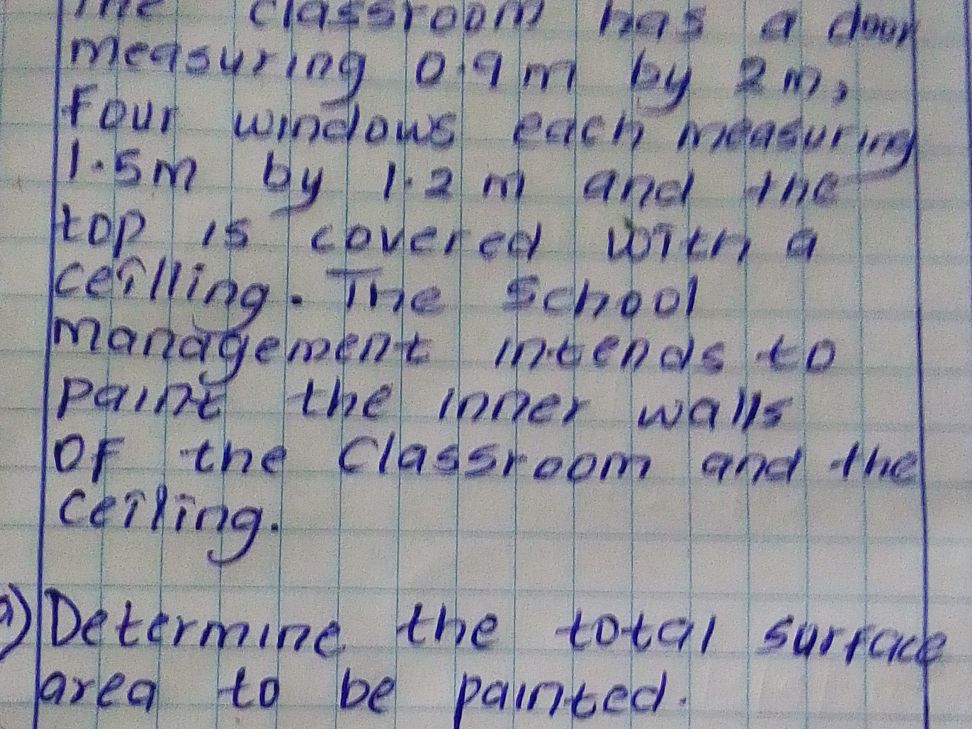 The classroom has a door
measuring 0.9m by 2m,
Four windows each measuring
1.5m by 1.2m and the
top is covered with a
ceilling. The school
management intends to
paint the inner walls
Of the Classroom and the
ceiling.
a) Determine the total surface
area to be painted.